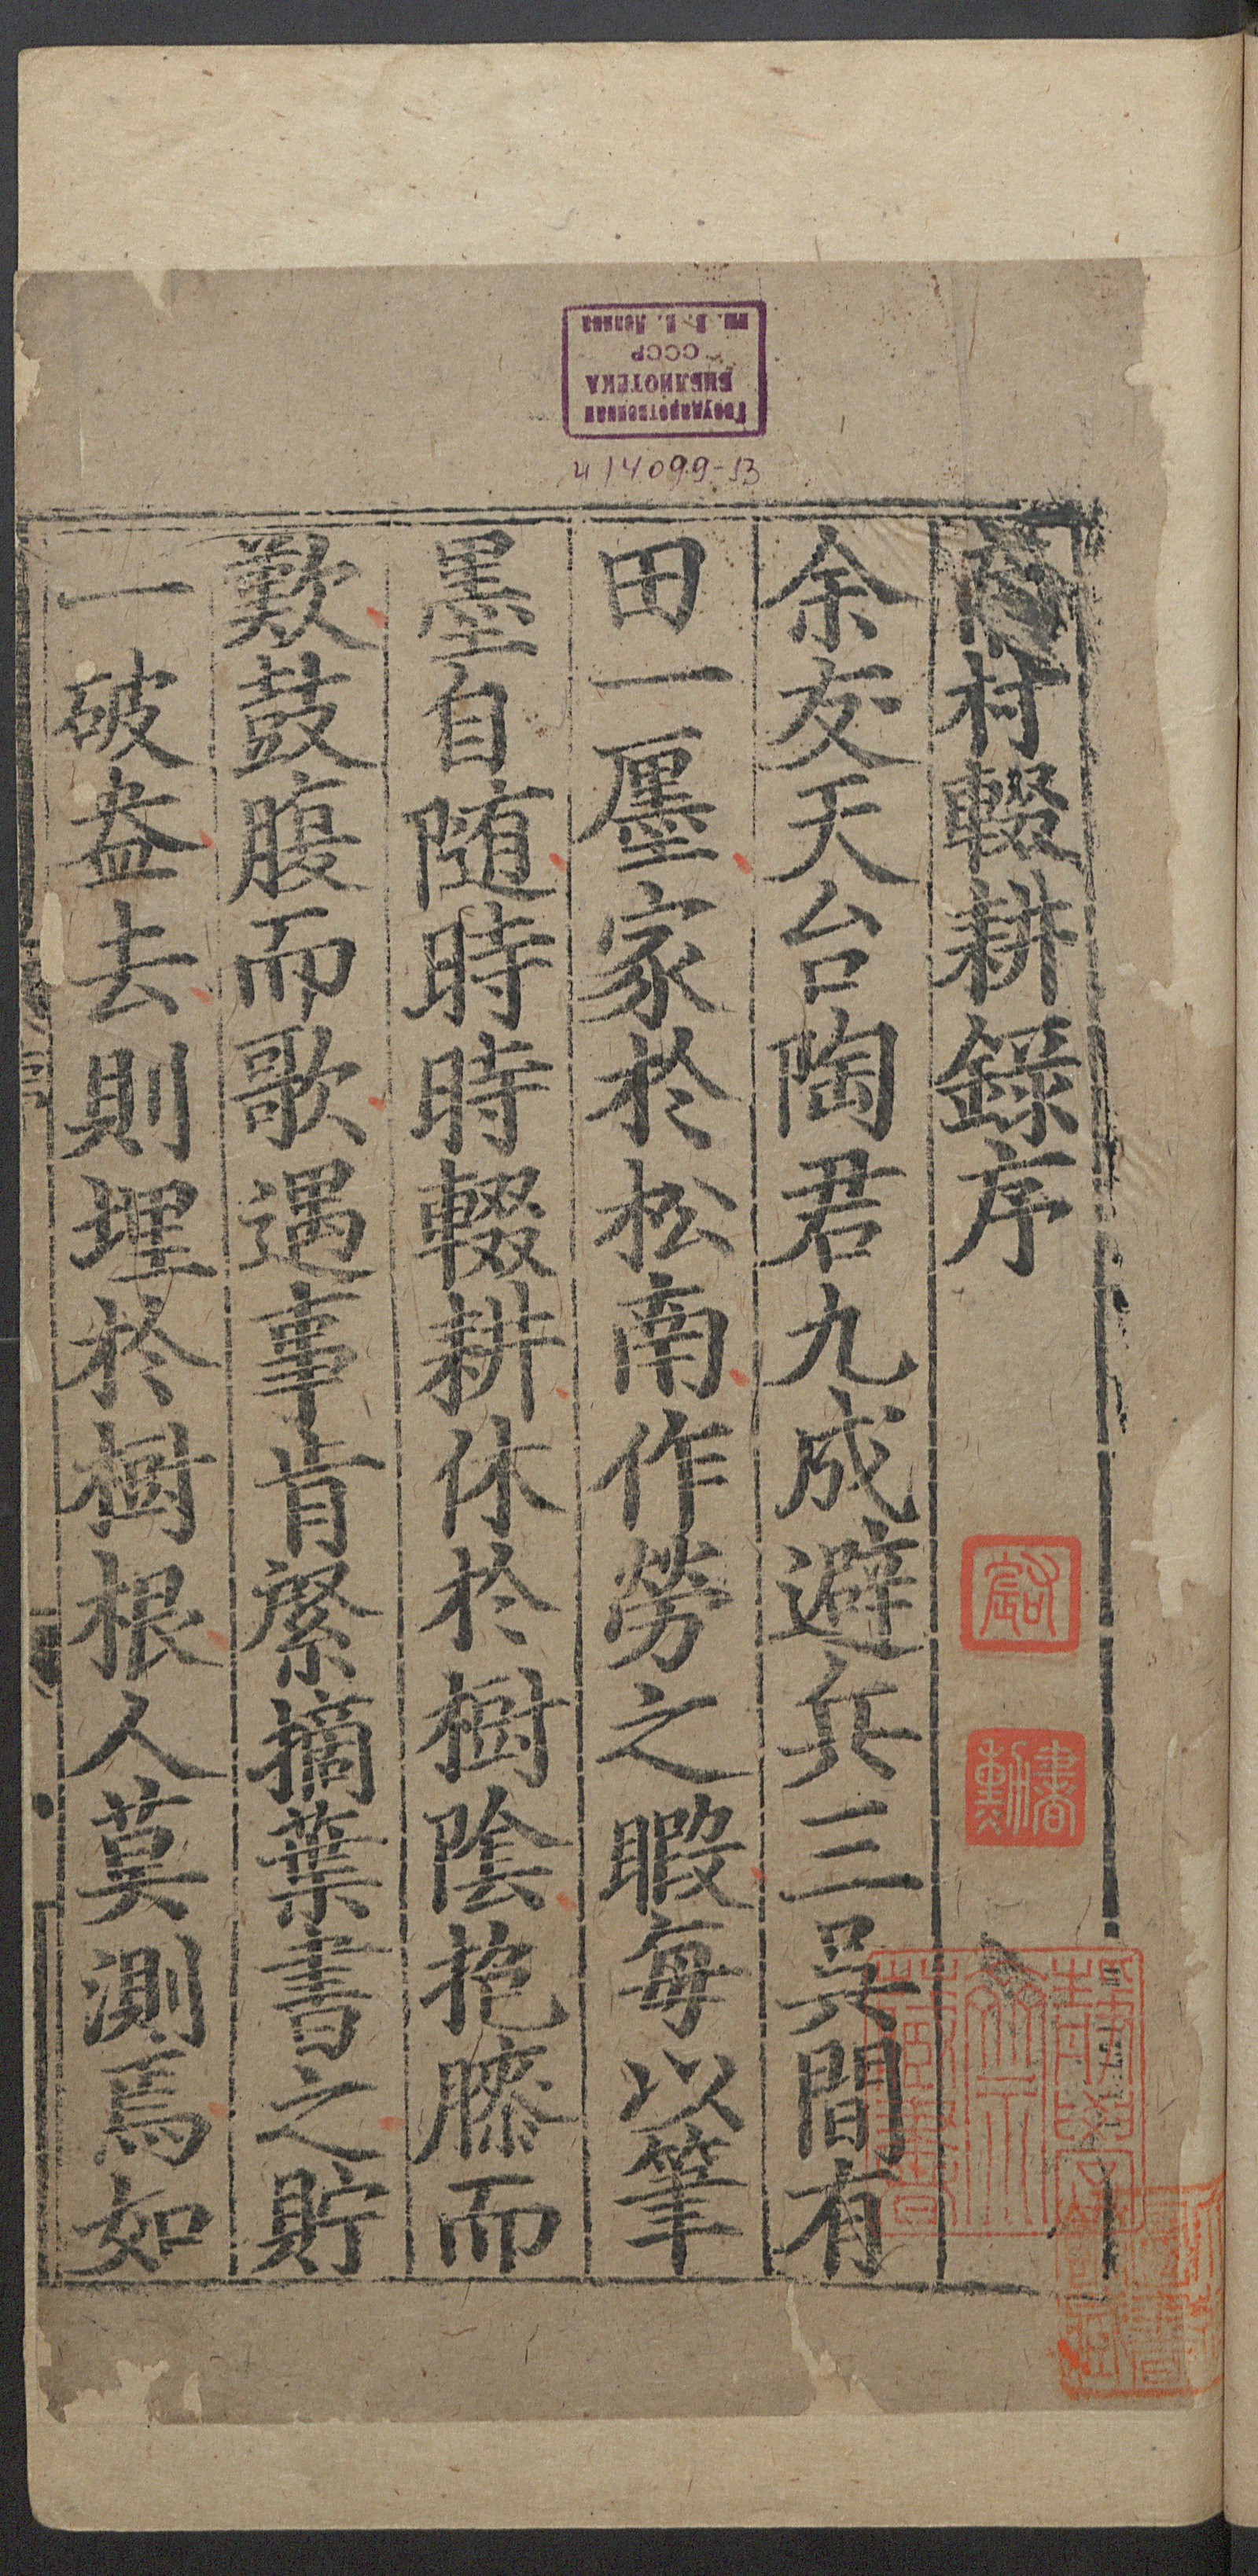 南村輟耕錄序
余友天台陶君九成避兵三吳間有
田一厘家於松南作勞之暇每以筆
墨自随時時輟耕休於樹陰抱膝而
歎鼓腹而歌遇事肯綮摘葉書之貯
一破盎去則埋於樹根人莫測焉如
Государственная
БИБЛИОТЕКА
СССР
им. В. И. Ленина
414099-53